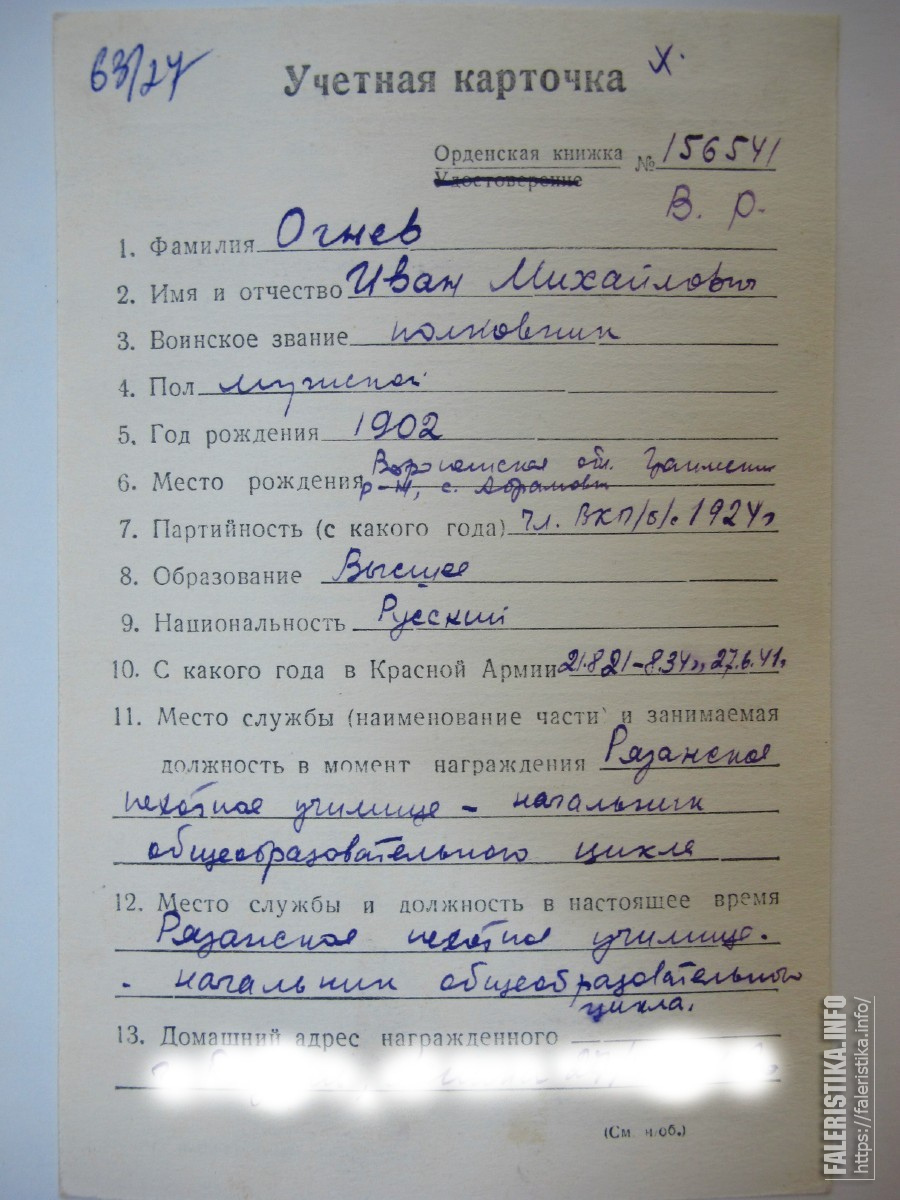 63/27
Учетная карточка х.
Орденская книжка № 156541
Удостоверение
В. О.
1. Фамилия Огнев
2. Имя и отчество Иван Михайлович
3. Воинское звание полковник
4. Пол мужской
5. Год рождения 1902
6. Место рождения Воронежская обл.
р-н, с. Абрамовка
7. Партийность (с какого года) чл. ВКП/б/с 1924г
8. Образование Высшее
9. Национальность Русский
10. С какого года в Красной Армии 21.8.21-8.34г., 27.6.41г
11. Место службы (наименование части и занимаемая
должность в момент награждения Рязанское
пехотное училище - начальник
общеобразовательного цикла
12. Место службы и должность в настоящее время
Рязанское пехотное училище.
- начальник общеобразовательного
цикла.
13. Домашний адрес награжденного
(См. н/об.)
FALERISTIKA.INFO
https://faleristika.info/